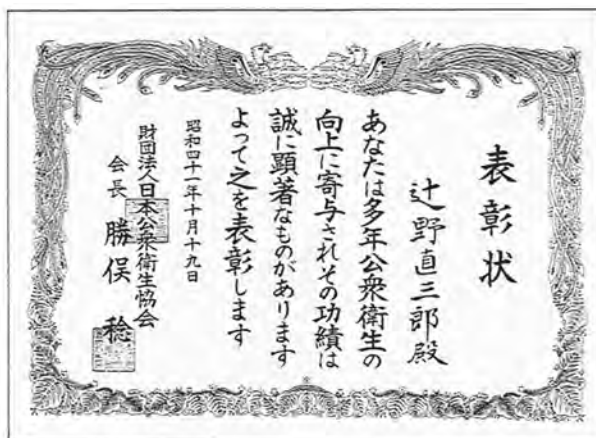 表彰状
辻野直三郎殿
あなたは多年公衆衛生の
向上に寄与されその功績は
誠に顕著なものがあります
よって之を表彰します
昭和四十一年十月十九日
財団法人日本公衆衛生協会
会長 勝俣 稔